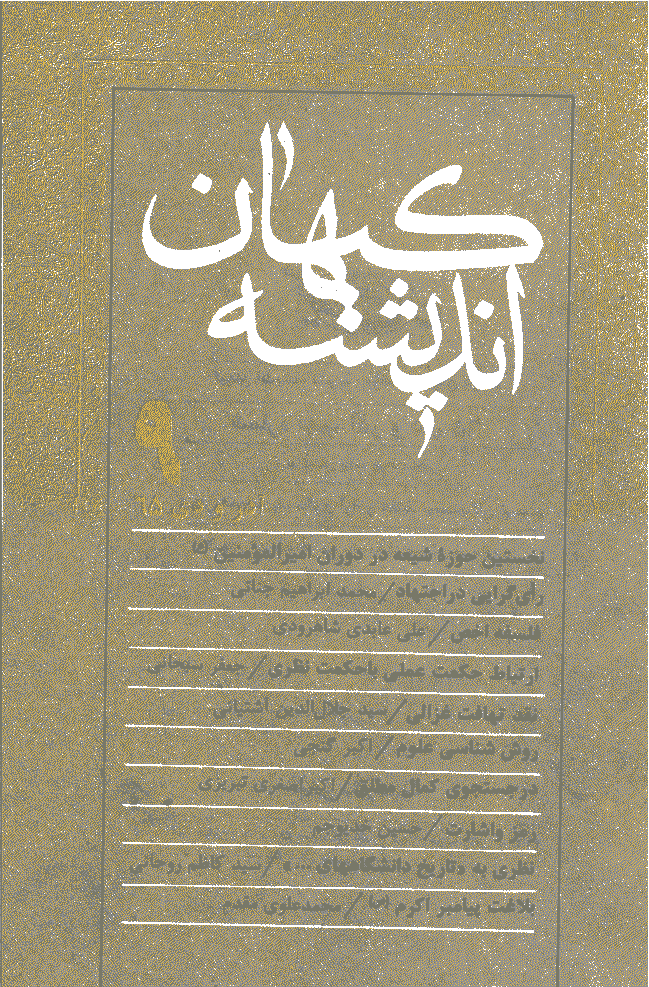 کیهان
اندیشه
۹
نخستین حوزهٔ شیعه در دوران امیرالمؤمنین(ع)
رأی‌گرایی در اجتهاد/محمد ابراهیم جناتی
فلسفه اخص/علی عابدی شاهرودی
ارتباط حکمت عملی باحکمت نظری/جعفر سبحانی
نقد تهافت غزالی/سید جلال‌الدین آشتیانی
روش شناسی علوم/اکبر گنجی
درجستجوی کمال مطلق/اکبر اصغری تبریزی
رمز واشارت/حسین خدیوجم
نظری به «تاریخ دانشگاههای...»/سید کاظم روحانی
بلاغت پیامبر اکرم (ص)/محمدعلوی مقدم